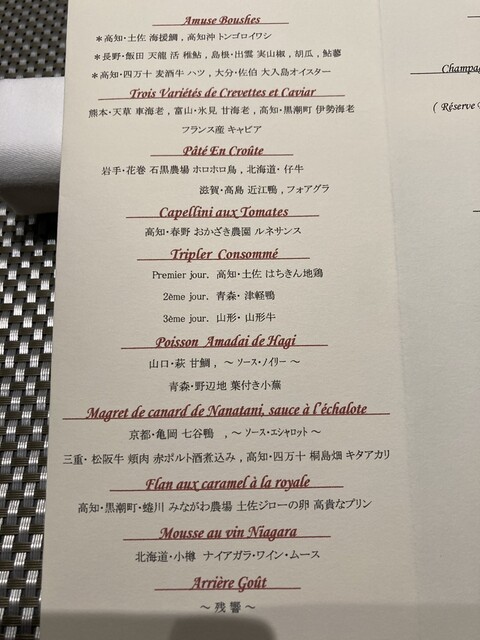 Amuse Boushes
＊高知・土佐 海援鯛 , 高知沖 トンゴロイワシ
＊長野・飯田 天龍 活 稚鮎 , 島根・出雲 実山椒 , 胡瓜 , 鮎蓼
＊高知・四万十 麦酒牛 ハツ , 大分・佐伯 大入島オイスター
Trois Variétés de Crevettes et Caviar
熊本・天草 車海老 , 富山・氷見 甘海老 , 高知・黒潮町 伊勢海老
フランス産 キャビア
Pâté En Croûte
岩手・花巻 石黒農場 ホロホロ鳥 , 北海道・ 仔牛
滋賀・高島 近江鴨 , フォアグラ
Capellini aux Tomates
高知・春野 おかざき農園 ルネサンス
Tripler Consommé
Premier jour. 高知・土佐 はちきん地鶏
2ème jour. 青森・ 津軽鴨
3ème jour. 山形・ 山形牛
Poisson Amadai de Hagi
山口・萩 甘鯛 , ～ ソース・ノイリー ～
青森・野辺地 葉付き小蕪
Magret de canard de Nanatani, sauce à l'échalote
京都・亀岡 七谷鴨 , ～ ソース・エシャロット ～
三重・ 松阪牛 頬肉 赤ポルト酒煮込み , 高知・四万十 桐島畑 キタアカリ
Flan aux caramel à la royale
高知・黒潮町・蜷川 みながわ農場 土佐ジローの卵 高貴なプリン
Mousse au vin Niagara
北海道・小樽 ナイアガラ・ワイン・ムース
Arrière Goût
～ 残 響 ～
Champa
( Réserve